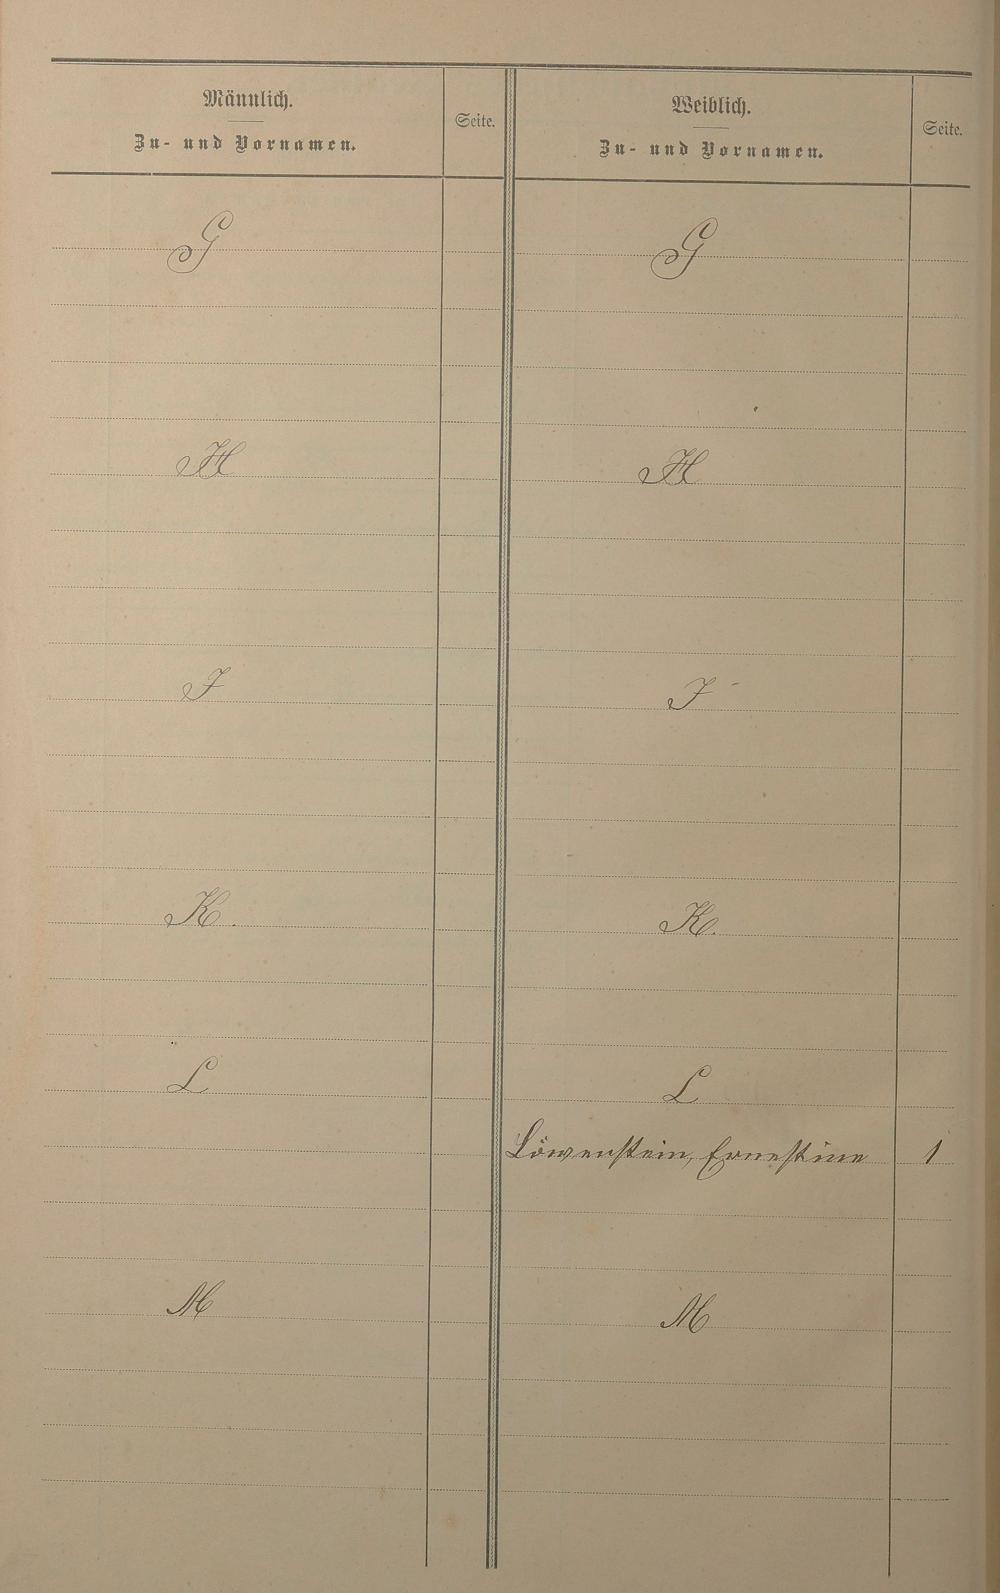 Männlich.
Zu- und Vornamen.
Seite.
Weiblich.
Zu- und Vornamen.
Seite.
G
G
H
H
I
I
K.
K.
L
L
Löwenstein, Ernestine 1
M
M